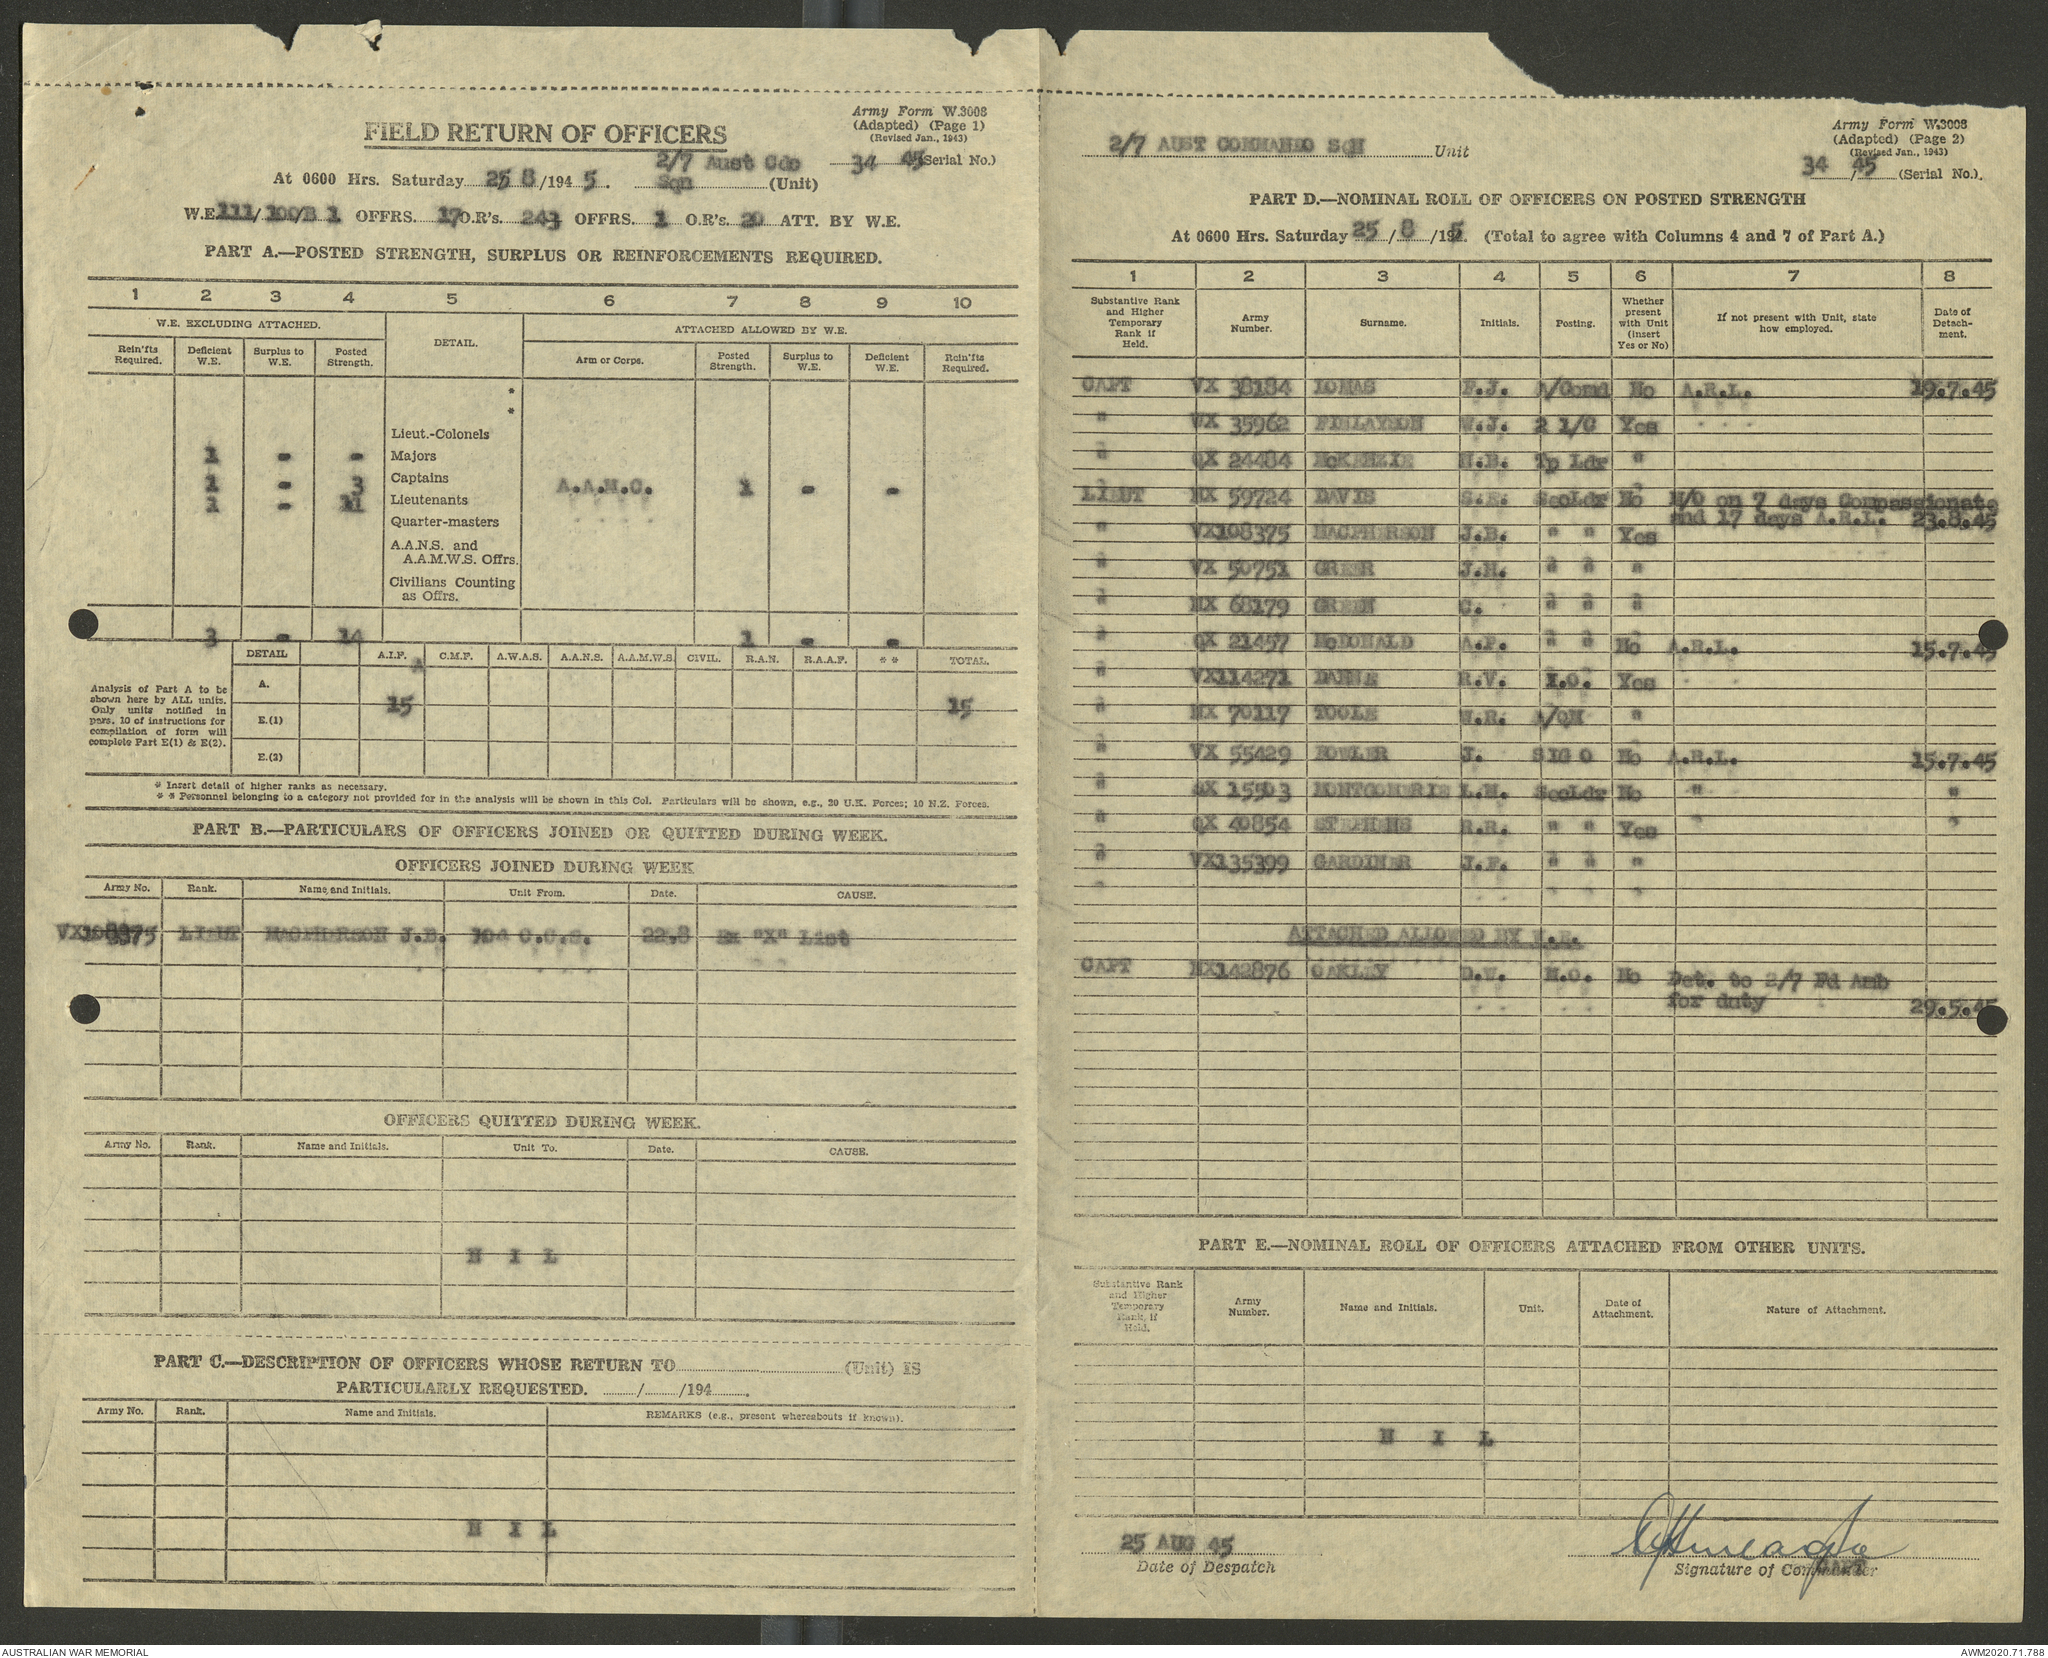 Army Form W.3008
(Adapted) (Page 1)
(Revised Jan., 1943)
FIELD RETURN OF OFFICERS
2/7 Aust Cdo 34 45 (Serial No.)
At 0600 Hrs. Saturday 25/8/1945. Sqn (Unit)
W.E. 111/100/B 1 OFFRS. 17 O.R's. 243 OFFRS. 1 O.R's. 20 ATT. BY W.E.
PART A.—POSTED STRENGTH, SURPLUS OR REINFORCEMENTS REQUIRED.
1 2 3 4 5 6 7 8 9 10
W.E. EXCLUDING ATTACHED. DETAIL. ATTACHED ALLOWED BY W.E.
Rein'fts Required. Deficient W.E. Surplus to W.E. Posted Strength. Arm or Corps. Posted Strength. Surplus to W.E. Deficient W.E. Rein'fts Required.
*
*
Lieut.-Colonels
1 - - Majors
1 - 3 Captains A.A.M.C. 1 - -
1 - 11 Lieutenants
Quarter-masters
A.A.N.S. and
A.A.M.W.S. Offrs.
Civilians Counting
as Offrs.
3 - 14 1 - -
DETAIL A.I.F. C.M.F. A.W.A.S. A.A.N.S. A.A.M.W.S. CIVIL. R.A.N. R.A.A.F. * * TOTAL.
Analysis of Part A to be
shown here by ALL units.
Only units notified in
para. 10 of instructions for
compilation of form will
complete Part E(1) & E(2).
A. 15 15
E.(1)
E.(2)
* Insert detail of higher ranks as necessary.
* * Personnel belonging to a category not provided for in the analysis will be shown in this Col. Particulars will be shown, e.g., 20 U.K. Forces; 10 N.Z. Forces.
PART B.—PARTICULARS OF OFFICERS JOINED OR QUITTED DURING WEEK.
OFFICERS JOINED DURING WEEK
Army No. Rank. Name and Initials. Unit From. Date. CAUSE.
VX108375 LIEUT MACPHERSON J.B. 104 C.C.S. 22.8 Ex "X" List
OFFICERS QUITTED DURING WEEK.
Army No. Rank. Name and Initials. Unit To. Date. CAUSE.
N I L
PART C.—DESCRIPTION OF OFFICERS WHOSE RETURN TO (Unit) IS
PARTICULARLY REQUESTED. / /194 .
Army No. Rank. Name and Initials. REMARKS (e.g., present whereabouts if known).
N I L
Army Form W.3008
(Adapted) (Page 2)
(Revised Jan., 1943)
2/7 AUST COMMANDO SQN Unit
34/45 (Serial No.).
PART D.—NOMINAL ROLL OF OFFICERS ON POSTED STRENGTH
At 0600 Hrs. Saturday 25/8/195. (Total to agree with Columns 4 and 7 of Part A.)
1 2 3 4 5 6 7 8
Substantive Rank and Higher Temporary Rank if Held. Army Number. Surname. Initials. Posting. Whether present with Unit (insert Yes or No) If not present with Unit, state how employed. Date of Detachment.
CAPT VX 38184 LOMAS F.J. A/Comd No A.R.L. 19.7.45
" VX 35962 FINLAYSON W.J. 2 I/C Yes
" QX 24484 McKENZIE N.B. Tp Ldr "
LIEUT NX 59724 DAVIS S.E. SecLdr No M/O on 7 days Compassionate
and 17 days A.R.L. 23.8.45
" VX108375 MACPHERSON J.B. " " Yes
" VX 50751 GREER J.H. " " "
" NX 68179 GREEN C. " " "
" QX 21457 McDONALD A.P. " " No A.R.L. 15.7.45
" VX114271 DANNE R.V. I.O. Yes
" NX 70117 TOOLE W.R. A/QM "
" VX 55429 FOWLER J. SIG O No A.R.L. 15.7.45
" SX 15503 MONTGOMERIE L.H. SecLdr No " "
" QX 40854 STEPHENS R.R. " " Yes
" VX135399 GARDINER J.F. " " "
ATTACHED ALLOWED BY W.E.
CAPT NX142876 OAKLEY D.W. M.O. No Det. to 2/7 Fd Amb
for duty 29.5.45
PART E.—NOMINAL ROLL OF OFFICERS ATTACHED FROM OTHER UNITS.
Substantive Rank and Higher Temporary Rank, if Held. Army Number. Name and Initials. Unit. Date of Attachment. Nature of Attachment.
N I L
25 AUG 45
Date of Despatch
CAPT
Signature of Commander
AUSTRALIAN WAR MEMORIAL
AWM2020.71.788